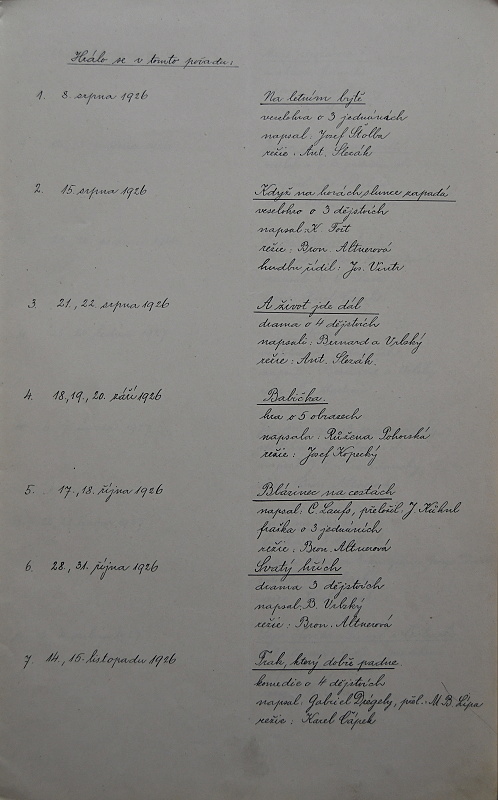 Hrálo se v tomto pořadu:
1. 8. srpna 1926
Na letním bytě
veselohra o 3 jednáních
napsal: Josef Štolba
režie: Ant. Slezák
2. 15. srpna 1926
Když na horách slunce zapadá
veselohra o 3 dějstvích
napsal: K. Fořt
režie: Bron. Altnerová
hudbu řídil: Jos. Vintr
3. 21., 22. srpna 1926
A život jde dál
drama o 4 dějstvích
napsali: Bernard a Vrlský
režie: Ant. Slezák.
4. 18, 19., 20. září 1926
Babička.
hra o 5 obrazech
napsala: Růžena Pohorská
režie: Josef Kopecký
5. 17., 18. října 1926
Blázinec na cestách
napsal: C. Laufs, přeložil: J. Kühnl
fraška o 3 jednáních
režie: Bron. Altnerová
6. 28., 31. října 1926
Svatý hřích
drama 3 dějstvích
napsal: B. Vrlský
režie: Bron. Altnerová
7. 14., 15. listopadu 1926
Frak, který dobře padne
komedie o 4 dějstvích
napsal: Gabriel Drégely, přel.: M. B. Lípa
režie: Karel Čápek